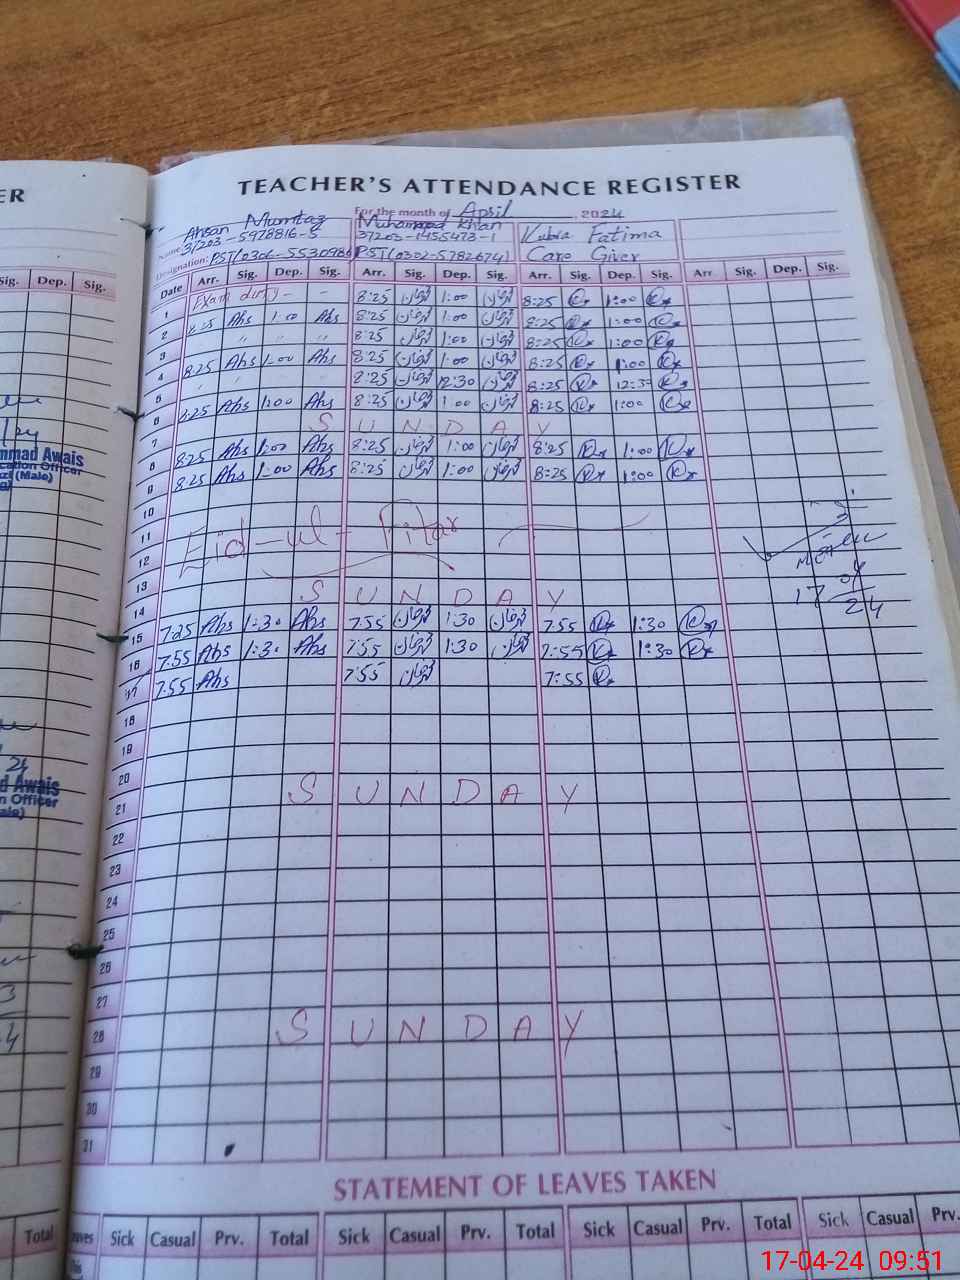 ER
TEACHER'S ATTENDANCE REGISTER
For the month of April, 2024
Name: Ahsan Mumtaz Muhammad Khan Kubra Fatima
37203-5978816-5 37203-1455473-1
Designation: PST(0306-5530986) PST(0302-5782674) Care Giver
Sig. Dep. Sig.
Date Arr. Sig. Dep. Sig. Arr. Sig. Dep. Sig. Arr. Sig. Dep. Sig. Arr. Sig. Dep. Sig.
1 Exam duty - - 8:25 1:00 8:25 1:00
2 8:25 Ahs 1:00 Ahs 8:25 1:00 8:25 1:00
3 " " " 8:25 1:00 8:25 1:00
4 8:25 Ahs 1:00 Ahs 8:25 1:00 8:25 1:00
5 " 8:25 12:30 8:25 12:30
6 8:25 Ahs 1:00 Ahs 8:25 1:00 8:25 1:00
7 S U N D A Y
8 8:25 Ahs 1:00 Ahs 8:25 1:00 8:25 1:00
9 8:25 Ahs 1:00 Ahs 8:25 1:00 8:25 1:00
10
11 Eid-ul-Fitar
12
13
14 S U N D A Y
15 7:25 Ahs 1:30 Ahs 7:55 1:30 7:55 1:30
16 7:55 Ahs 1:30 Ahs 7:55 1:30 7:55 1:30
17 7:55 Ahs 7:55 7:55
18
19
20
21 S U N D A Y
22
23
24
25
26
27
28 S U N D A Y
29
30
31
17 04 24
mmad Awais
cation Officer
(Male)
d Awais
n Officer
ale)
STATEMENT OF LEAVES TAKEN
Total
Leaves Sick Casual Prv. Total Sick Casual Prv. Total Sick Casual Prv. Total Sick Casual Prv.
17-04-24 09:51